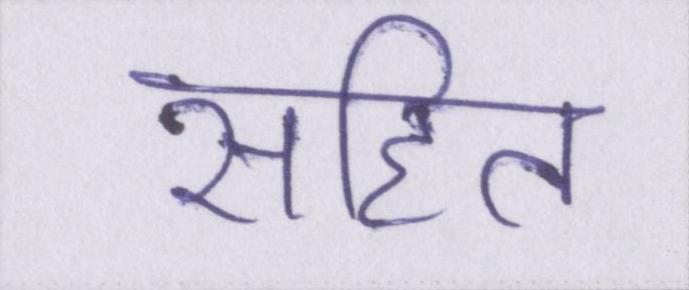 सहित